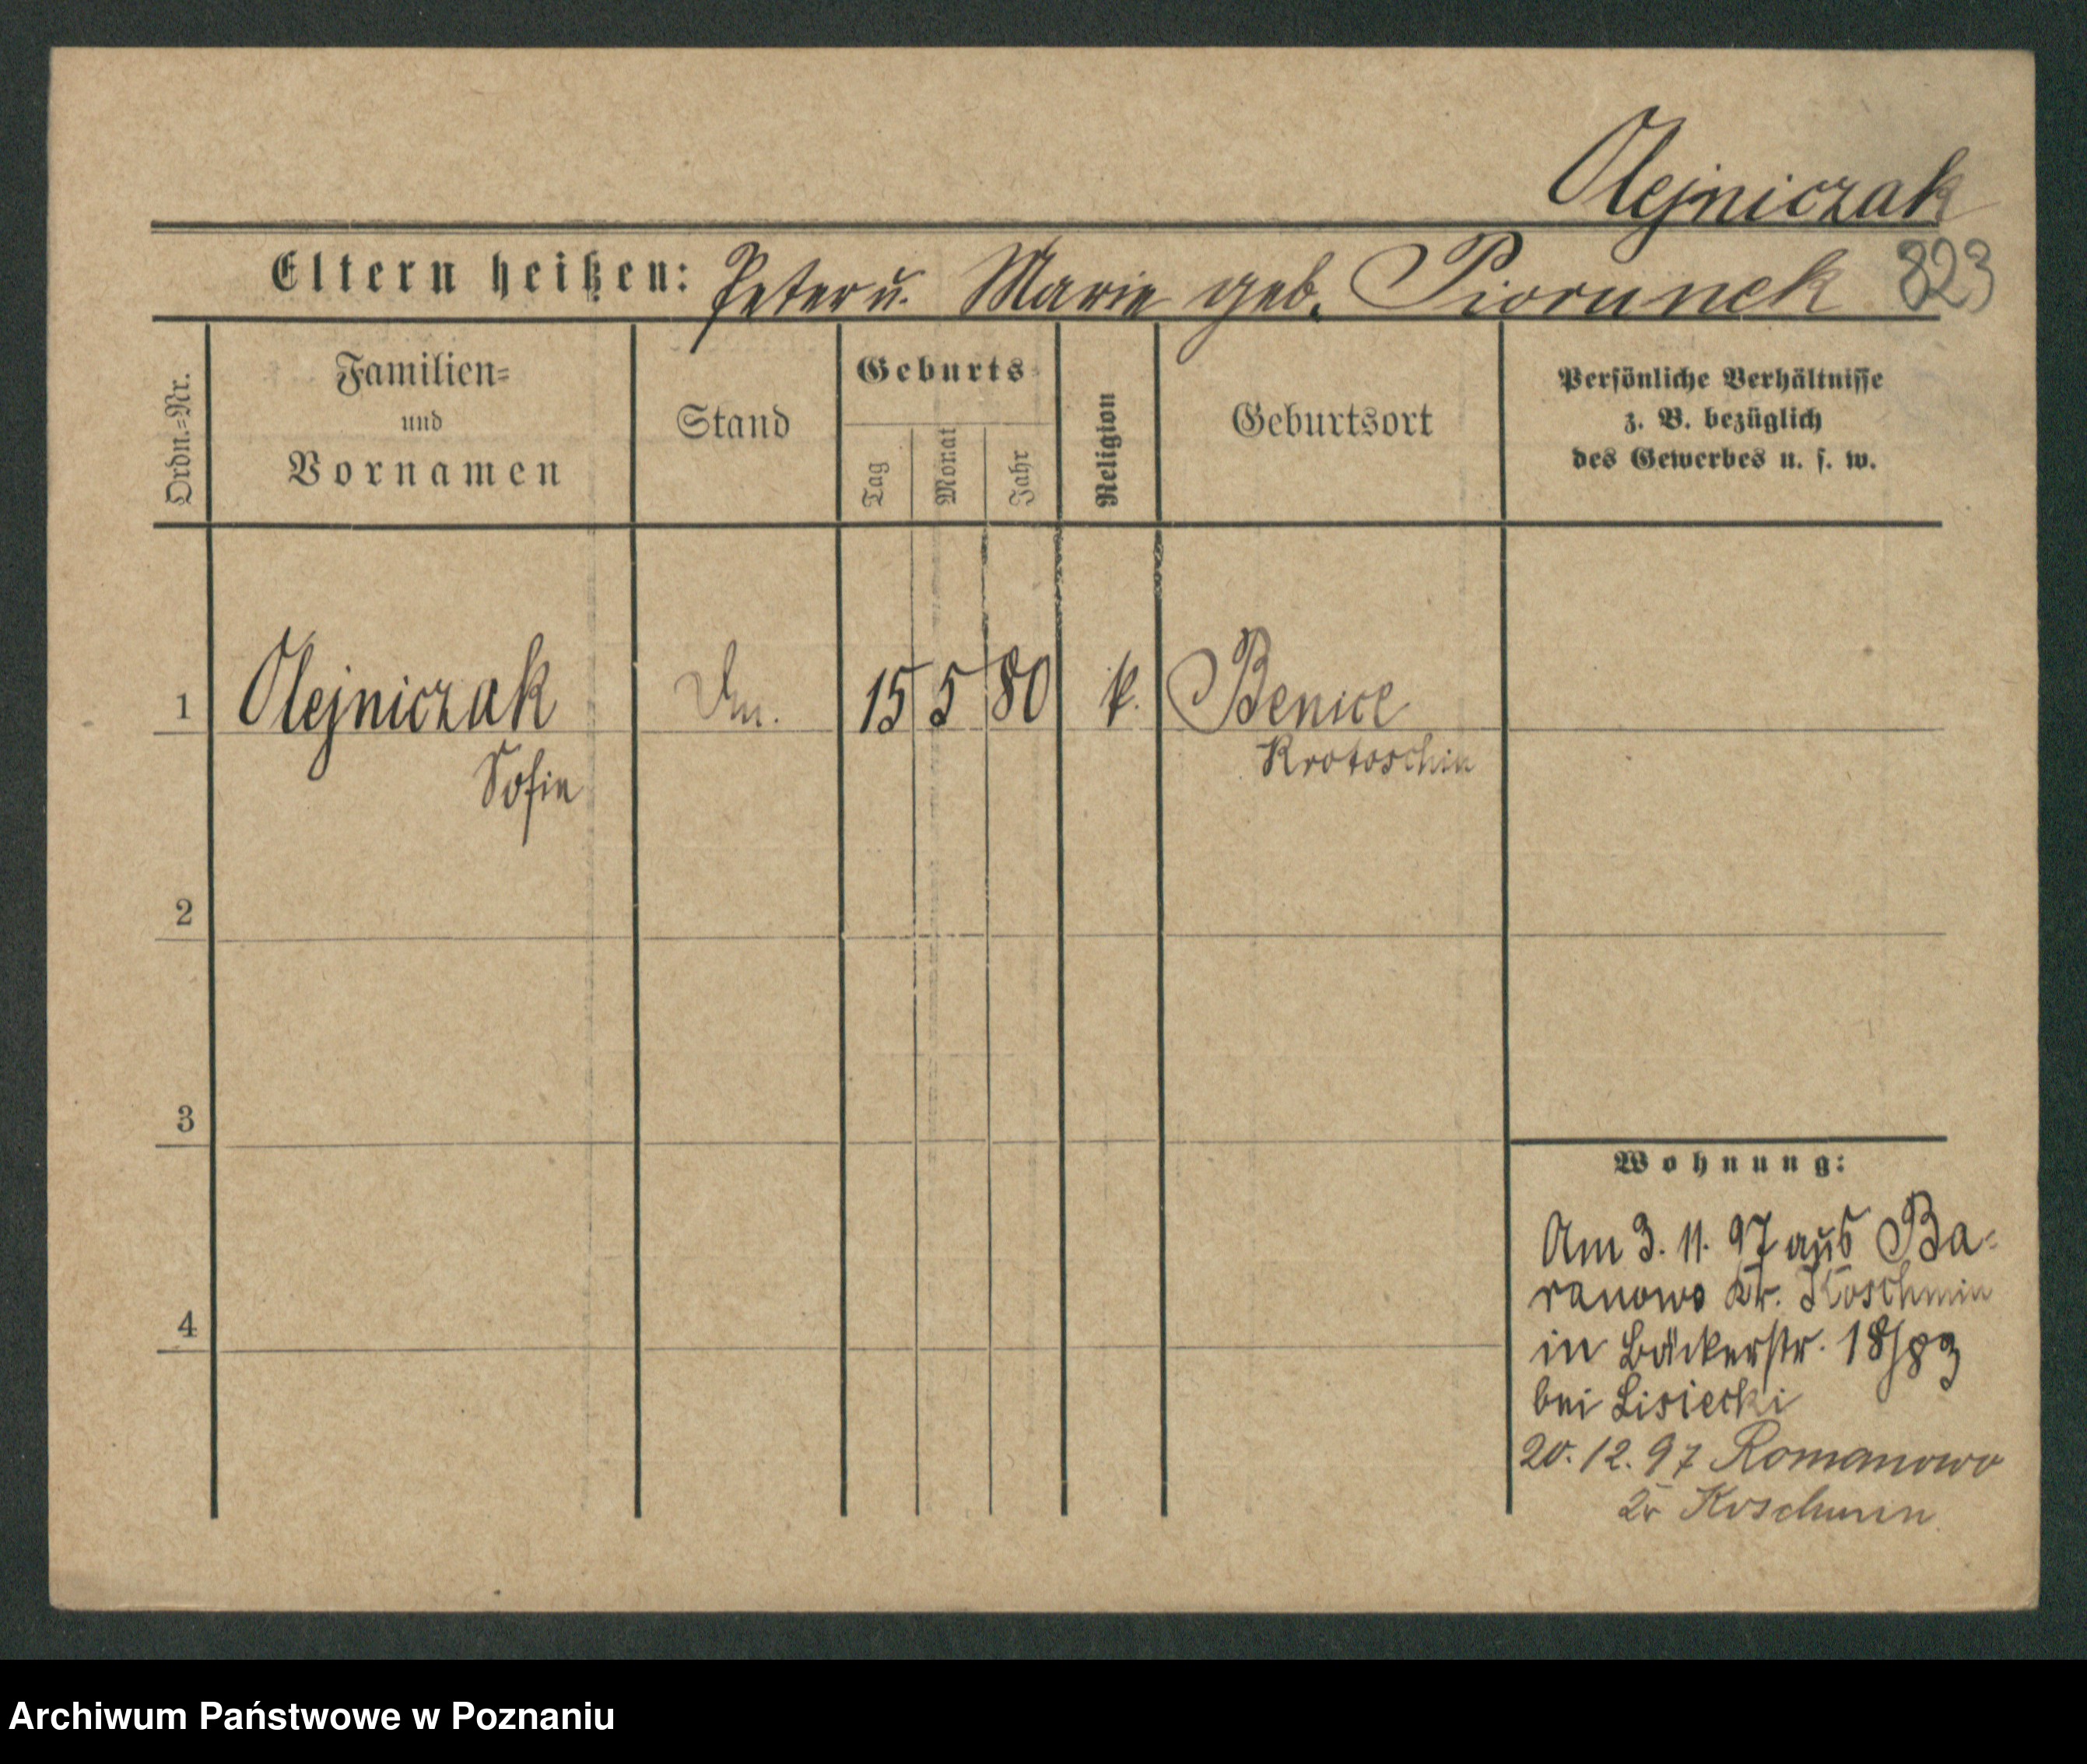 Olejniczak
Eltern heißen: Peter u. Marie geb. Piorunek 823
Ordn.=Nr.
Familien=
und
Vornamen
Stand
Geburts
Tag
Monat
Jahr
Religion
Geburtsort
Persönliche Verhältnisse
z. B. bezüglich
des Gewerbes u. s. w.
1 Olejniczak 15 5 80 k. Benice
Sofie Krotoschin
2
3
Wohnung:
Am 3. 11. 97 aus Ba-
ranowo Kr. Koschmin
4
in Bäckerstr. 18/83
bei Lisiecki
20. 12. 97 Romanowo
Kr Koschmin
Archiwum Państwowe w Poznaniu